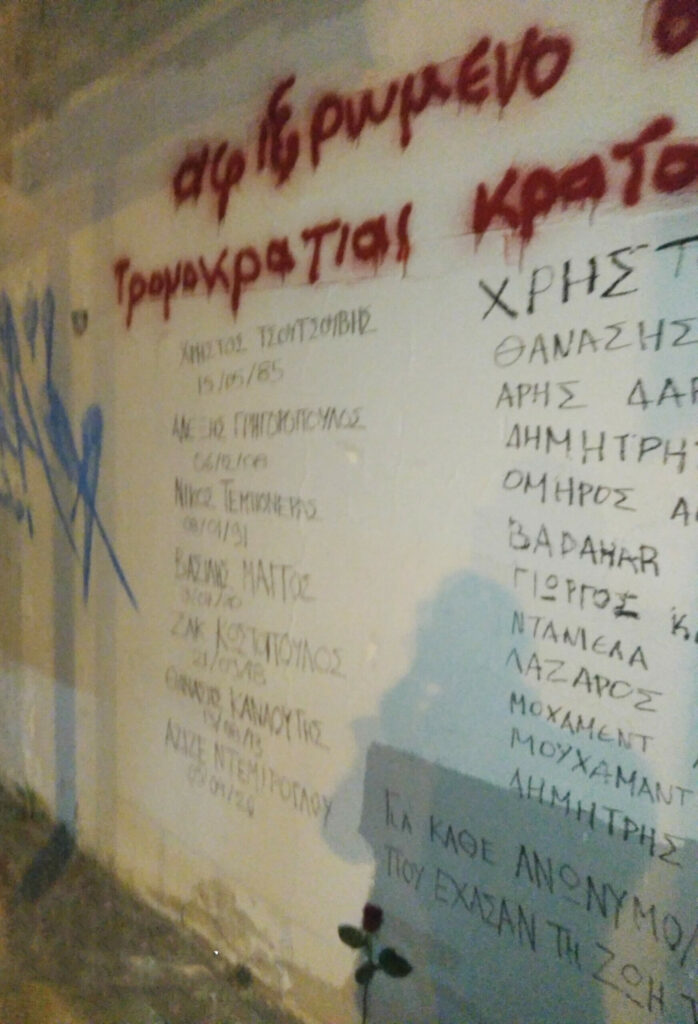 αφιερωμένο
τρομοκρατίας κρατο
ΧΡΗΣΤΟΣ ΤΣΟΥΤΣΟΥΒΗΣ
15/05/85
ΑΛΕΞΗΣ ΓΡΗΓΟΡΟΠΟΥΛΟΣ
06/12/08
ΝΙΚΟΣ ΤΕΜΠΟΝΕΡΑΣ
08/01/91
ΒΑΣΙΛΗΣ ΜΑΓΓΟΣ
ΖΑΚ ΚΩΣΤΟΠΟΥΛΟΣ
21/09/18
ΘΑΝΑΣΗΣ ΚΑΝΑΟΥΤΗΣ
ΑΖΙΖΕ ΝΤΕΜΙΡΟΓΛΟΥ
ΧΡΗΣΤ
ΘΑΝΑΣΗΣ
ΑΡΗΣ ΔΑΡ
ΔΗΜΗΤΡΗ
ΟΜΗΡΟΣ
ΓΙΩΡΓΟΣ
ΝΤΑΝΙΕΛΑ
ΛΑΖΑΡΟΣ
ΜΟΧΑΜΕΝΤ
ΜΟΥΧΑΜΑΝΤ
ΔΗΜΗΤΡΗΣ
ΓΙΑ ΚΑΘΕ ΑΝΩΝΥΜΟ/
ΠΟΥ ΕΧΑΣΑΝ ΤΗ ΖΩΗ Τ